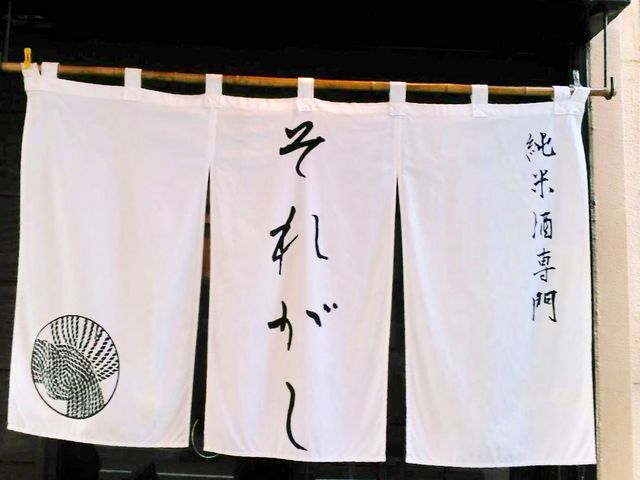 純米酒専門
それがし